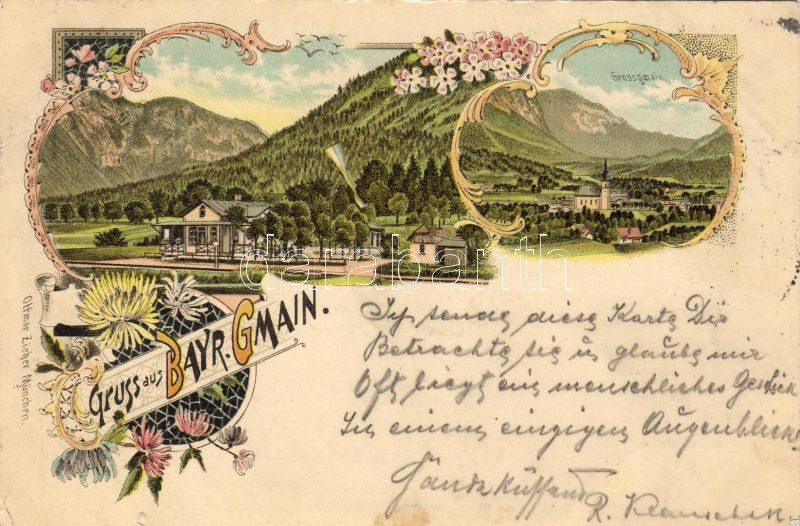 Grossgmain.
Gruss aus BAYR. GMAIN.
Ottmar Zieher, München.
darabanth
Ich sende diese Karte Dir
Betrachte sie u glaube mir
Oft liegt ein menschliches Geschick
In einem einzigen Augenblick
Händeküssend
R.